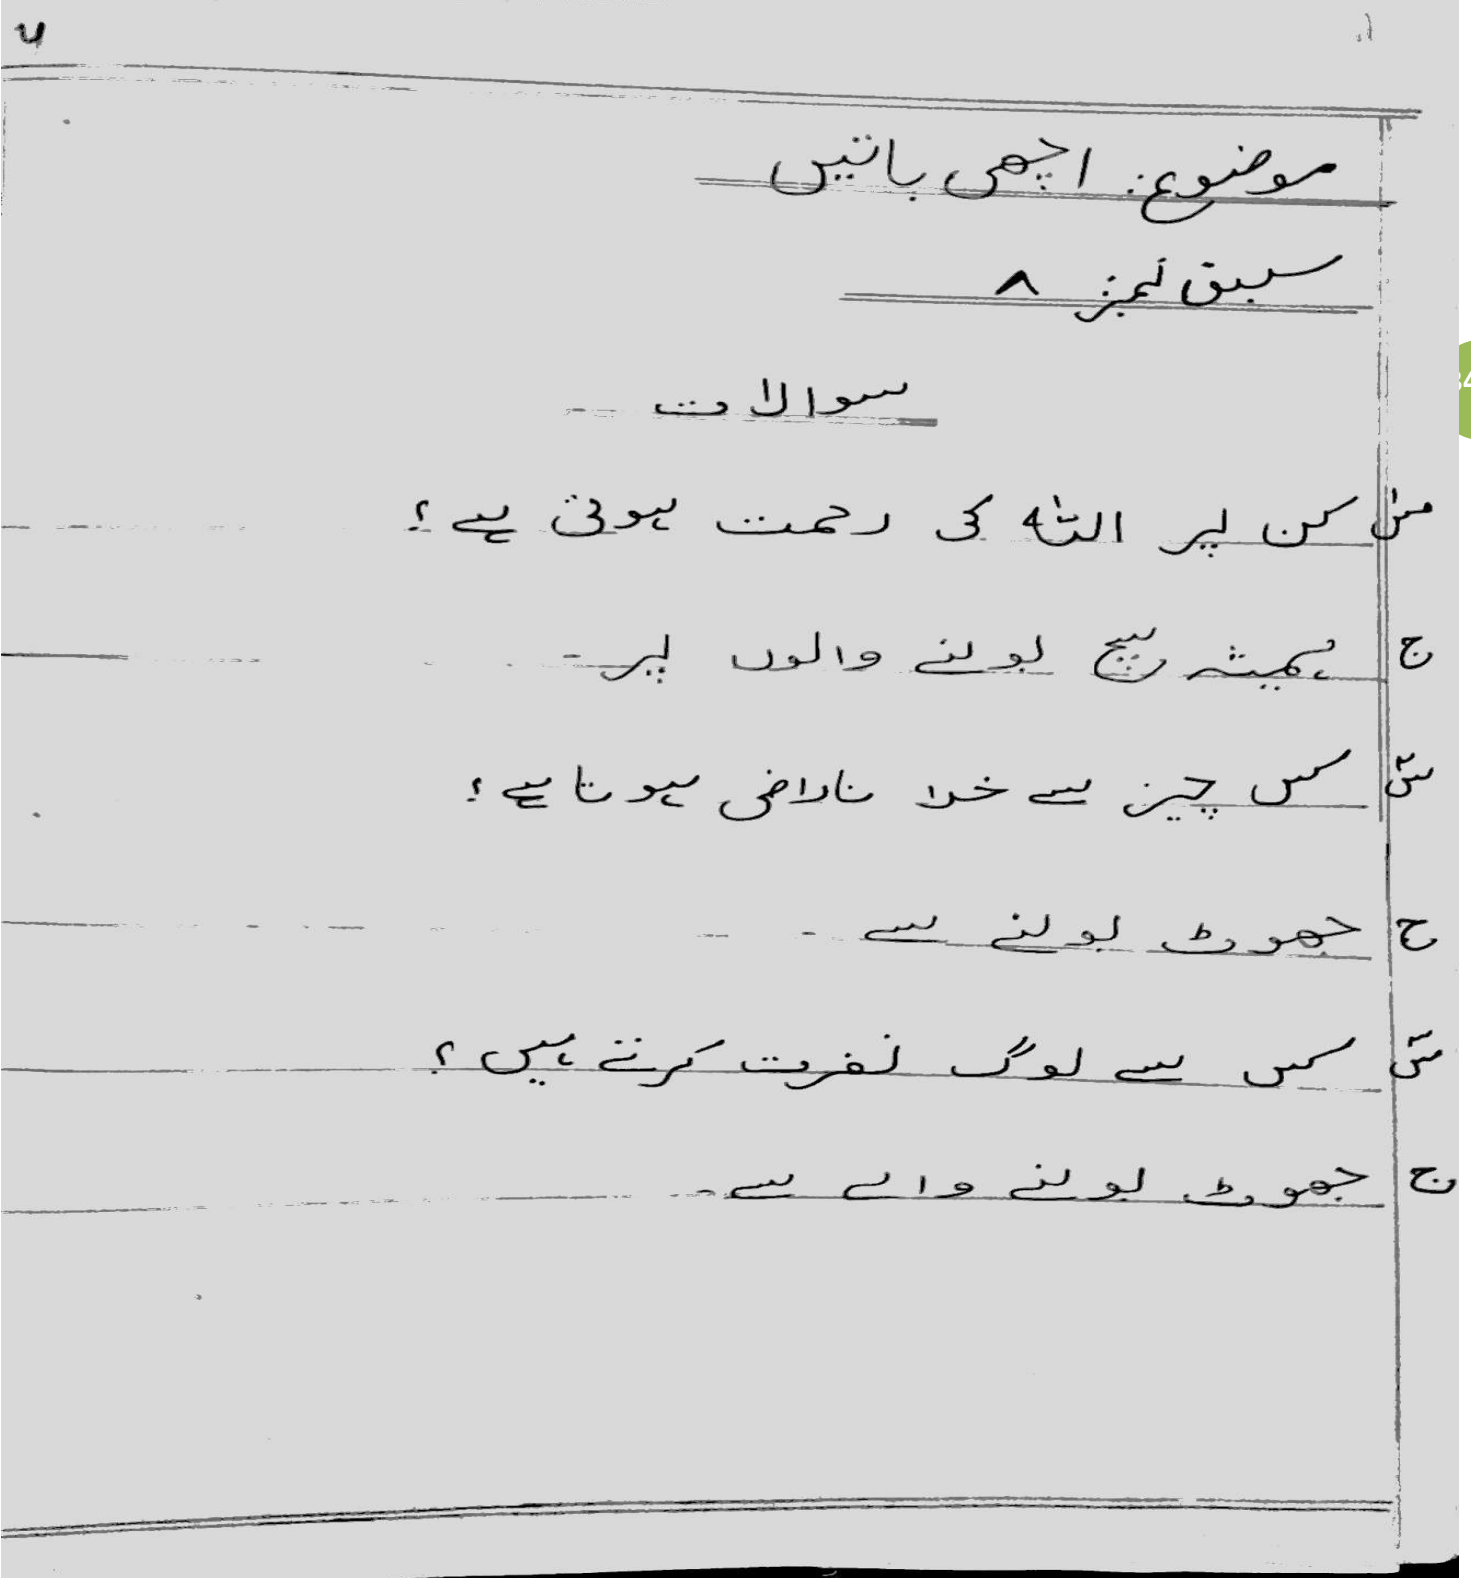 موضوع: اچھی باتیں
سبق نمبر: ۸
سوالات
س۱ کن پر اللہ کی رحمت ہوتی ہے؟
ج ہمیشہ سچ بولنے والوں پر۔
س۲ کس چیز سے خدا ناراض ہوتا ہے؟
ج جھوٹ بولنے سے
س۳ کس سے لوگ نفرت کرتے ہیں؟
ج جھوٹ بولنے والے سے۔